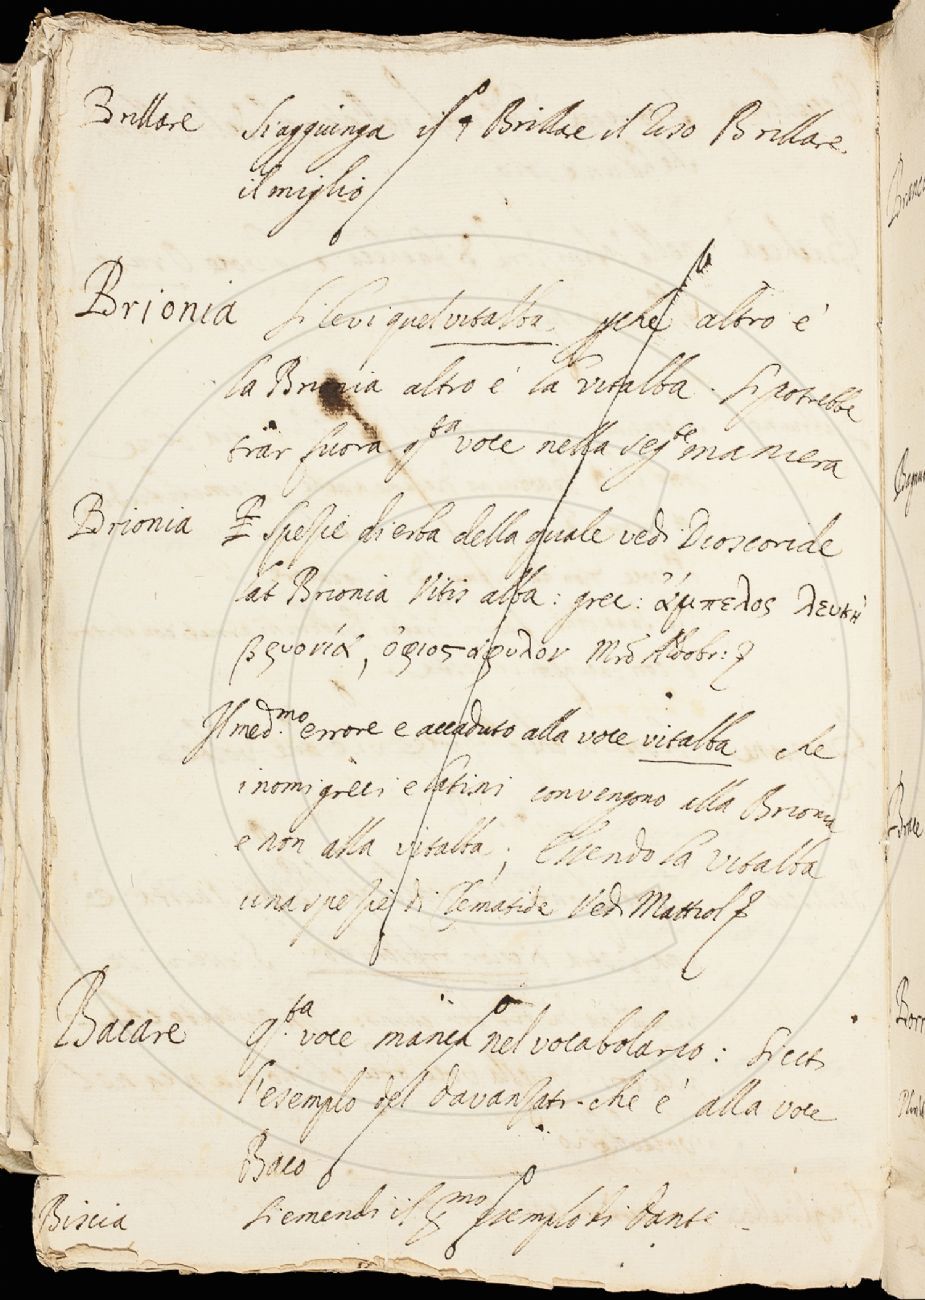 Brillare Si aggiunga il § Brillare il riso Brillare
il miglio
Brionia Si levi quel vitalba pche altro é
la Brionia altro é la vitalba. Si potrebbe
trar fuora qsta voce nella segte maniera
Brionia Spezie di erba della quale vedi Dioscoride
lat Brionia Vitis alba: grec: ἄμπελος λευκὴ
βρυονία, ὀφιοσταφυλον Mrõ Aldobr:
Il med.mo errore e accaduto alla voce vitalba che
i nomi greci e latini convengono alla Brionia
e non alla vitalba; Essendo la vitalba
una spezie di Clematide Vedi Mattiol
Bacare qsta voce manca nel vocabolario: Si citi
l'esemplo del Davanzati che é alla voce
Baco
Biscia Si emendi il esemplo di Dante